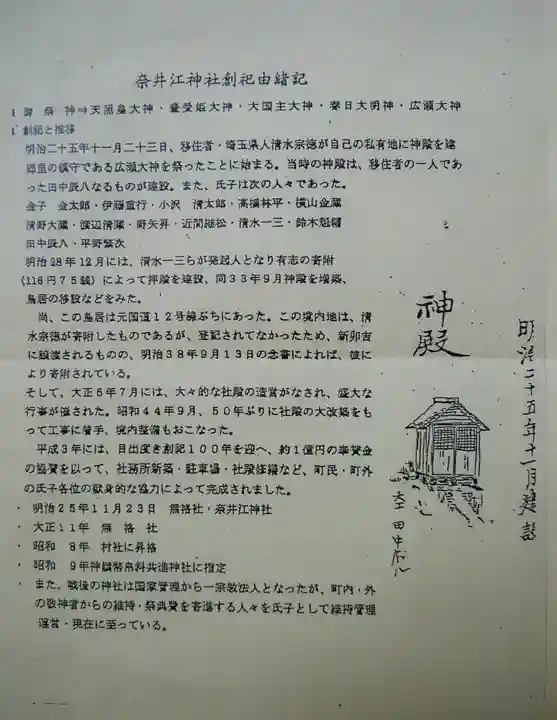 奈井江神社創祀由緒記
1 御 祭 神⇒天照皇大神・豊受姫大神・大国主大神・春日大明神・広瀬大神
1 創祀と推移
明治二十五年十一月二十三日、移住者・埼玉県人清水宗徳が自己の私有地に神殿を建
郷里の鎮守である広瀬大神を祭ったことに始まる。当時の神殿は、移住者の一人であ
った田中辰八なるものが建設。また、氏子は次の人々であった。
金子 金太郎・伊藤重行・小沢 清太郎・高橋林平・横山金蔵
清野大蔵・渡辺清蔵・野矢昇・近間継松・清水一三・鈴木
田中辰八・平野繁次
明治28年12月には、清水一三らが発起人となり有志の寄附
(116円75銭)によって拝殿を建設、同33年9月神殿を増築、
鳥居の移設などをみた。
尚、この鳥居は元国道12号線ぶちにあった。この境内地は、清
水宗徳が寄附したものであるが、登記されてなかったため、新卯吉
に譲渡されるものの、明治38年9月13日の念書によれば、彼に
より寄附されている。
そして、大正6年7月には、大々的な社殿の造営がなされ、盛大な
行事が催された。昭和44年9月、50年ぶりに社殿の大改築をも
って工事に着手、境内整備もおこなった。
平成3年には、目出度き創祀100年を迎へ、約1億円の奉賛金
の協賛を以って、社務所新築・駐車場・社殿修繕など、町民・町外
の氏子各位の献身的な協力によって完成されました。
・ 明治25年11月23日 無格社・奈井江神社
・ 大正11年 無 格 社
・ 昭和 8年 村社に昇格
・ 昭和 9年神饌幣帛料共進神社に指定
・ また、戦後の神社は国家管理から一宗教法人となったが、町内・外
の敬神者からの維持・祭典費を寄進する人々を氏子として維持管理
運営・現在に至っている。
神殿
明治二十五年十一月建設
大工 田中辰八